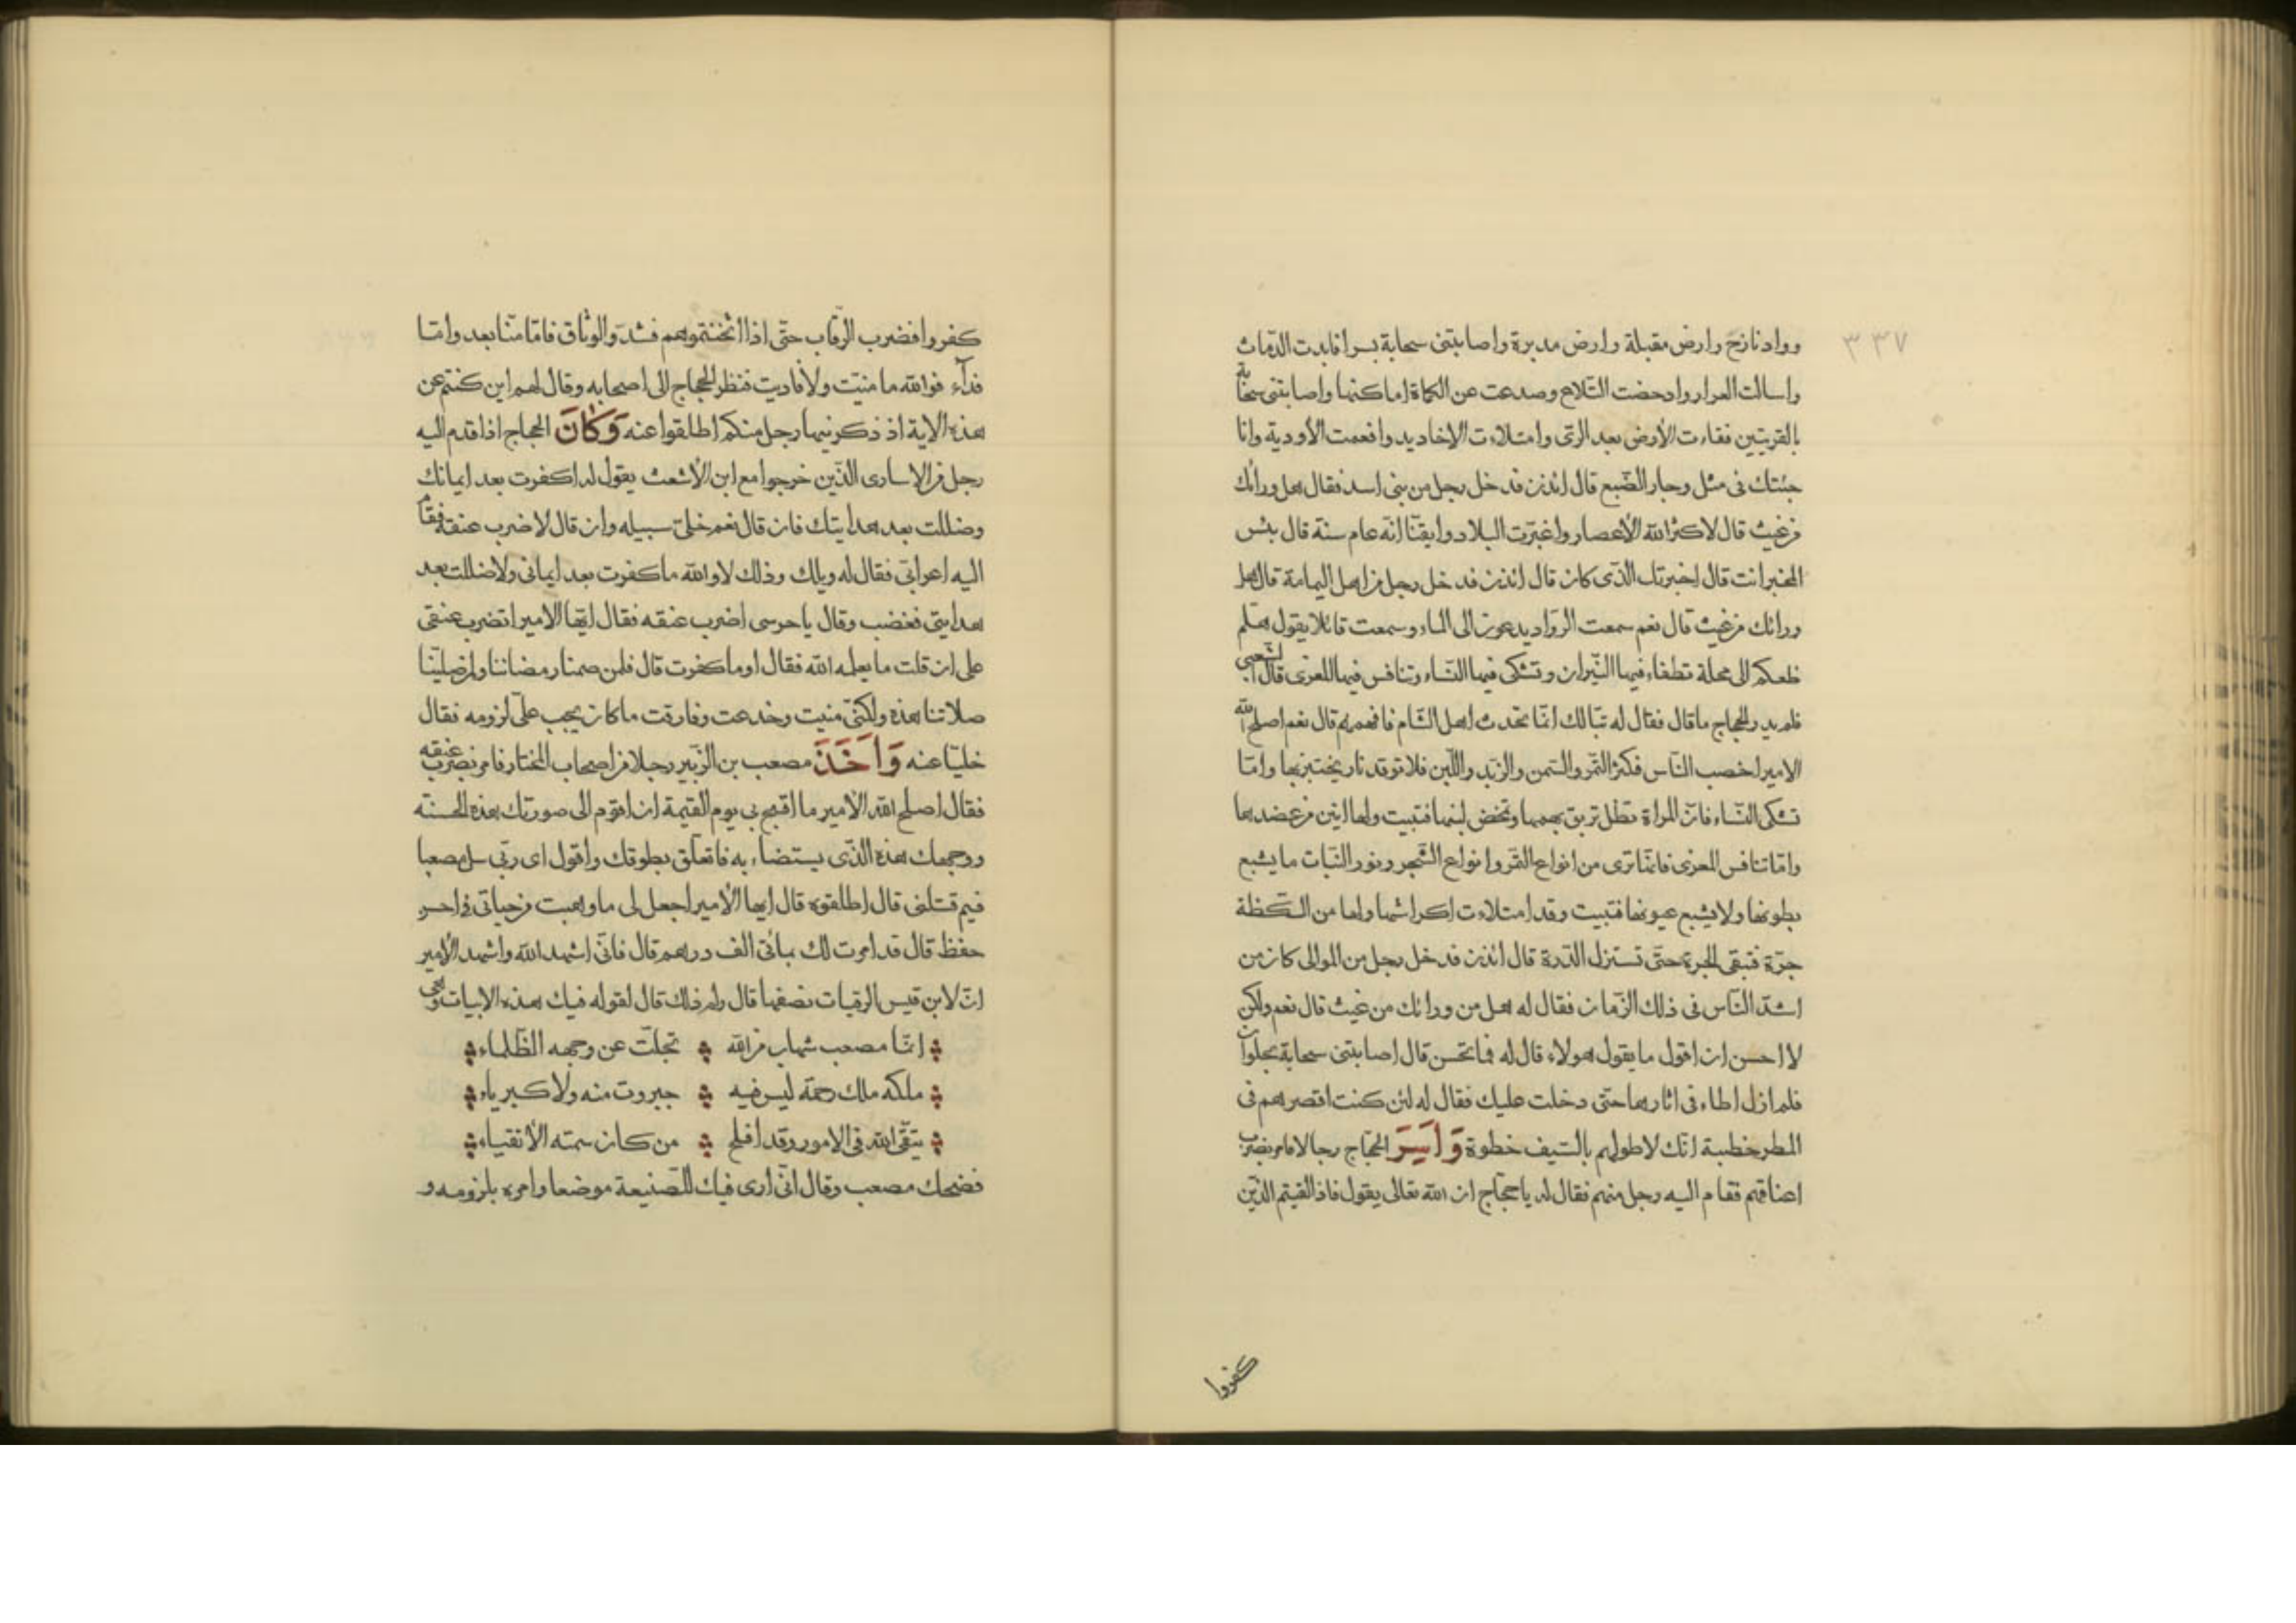 ٣٣٧
وواد نازح وارض مقبلة وارض مدبرة واصابتنى سحابة بسرا فابدت الدماث
واسالت العرار وادحضت التلاع وصدعت عن الكماة اماكنها واصابتنى سحابة
بالقريتين فقاءت الأرض بعد الرى وامتلاءت الاخاديد وافعمت الأودية وانا
جئتك فى مثل وجار الضبع قال ائذن فدخل رجل من بنى اسد فقال هل ورائك
من غيث قال لا كثر الله الأعصار واغبرت البلاد وايقنا انه عام سنة قال بئس
المخبر انت قال اخبرتك الذى كان قال ائذن فدخل رجل من اهل اليمامة قال هل
ورائك من غيث قال نعم سمعت الرواد يدعون الى الماء وسمعت قائلا يقول هلم
ظعنكم الى محلة تطفاء فيها النيران وتشكى فيها النساء وتنافس فيها المعزى قال الشعبى
فلم يدر الحجاج ما قال فقال له تبا لك انما تحدث اهل الشام فافهمهم قال نعم اصلح الله
الامير اخصب الناس فكثر التمر والسمن والزبد واللبن فلا توقد نار يختبز بها واما
تشكى النساء فان المراة تظل تربق بهمها وتمخض لبنها فتبيت ولها انين من عضدها
واما تنافس المعزى فانها ترى من انواع الثمر وانواع الشجر ونور النبات ما يشبع
بطونها ولا يشبع عيونها فتبيت وقد امتلاءت اكراشها ولها من الكظة
جرة فتبقى الجرة حتى تستنزل الدرة قال ائذن فدخل رجل من الموالى كان من
اشد الناس فى ذلك الزمان فقال له هل من ورائك من غيث قال نعم ولكن
لا احسن ان اقول ما يقول هولاء قال له فما تحسن قال اصابتنى سحابة بحلوان
فلم ازل اطاء فى اثارها حتى دخلت عليك فقال له لئن كنت اقصرهم فى
المطر خطبة انك لاطولهم بالسيف خطوة وَاَسَرَ الحجاج رجالا فامر بضرب
اعناقهم فقام اليه رجل منهم فقال له يا حجاج ان الله تعالى يقول فاذا لقيتم الذين
كفروا
كفروا فضرب الرقاب حتى اذا اثخنتموهم فشدوا الوثاق فاما منا بعد واما
فدآء فوالله ما منيت ولا فاديت فنظر الحجاج الى اصحابه وقال لهم اين كنتم عن
هذه الاية اذ ذكرنيها رجل منكم اطلقوا عنه وَكَانَ الحجاج اذا قدم اليه
رجل من الاسارى الذين خرجوا مع ابن الأشعث يقول له اكفرت بعد ايمانك
وضللت بعد هدايتك فان قال نعم خلى سبيله وان قال لا ضرب عنقه فقام
اليه اعرابى فقال له ويلك وذلك لا والله ما كفرت بعد ايمانى ولا ضللت بعد
هدايتى فغضب وقال يا حرسى اضرب عنقه فقال ايها الامير اتضرب عنقى
على ان قلت ما يعلمه الله فقال اوما كفرت قال فلمن صمنا رمضاننا ولم صلينا
صلاتنا هذه ولكنى منيت وخدعت وفارقت ما كان يجب على لزومه فقال
خليا عنه وَاَخَذَ مصعب بن الزبير رجلا من اصحاب المختار فامر بضرب عنقه
فقال اصلح الله الأمير ما اقبح بى يوم القيمة ان اقوم الى صورتك هذه الحسنة
ووجهك هذه الذى يستضاء به فاتعلق بطوقك واقول اى ربى سل مصعبا
فيم قتلنى قال اطلقوه قال ايها الأمير اجعل لى ما وهبت من حياتى فى احسن
حفظ قال قد امرت لك بمائتى الف درهم قال فانى اشهد الله واشهد الأمير
ان لابن قيس الرقيات نصفها قال ولم ذلك قال لقوله فيك هذه الابيات وهى
انما مصعب شهاب من الله تجلت عن وجهه الظلماء
ملكه ملك رحمة ليس فيه جبروت منه ولا كبرياء
يتقى الله فى الامور وقد افلح من كان سمته الأتقياء
فضحك مصعب وقال انى ارى فيك للصنيعة موضعا وامره بلزومه و